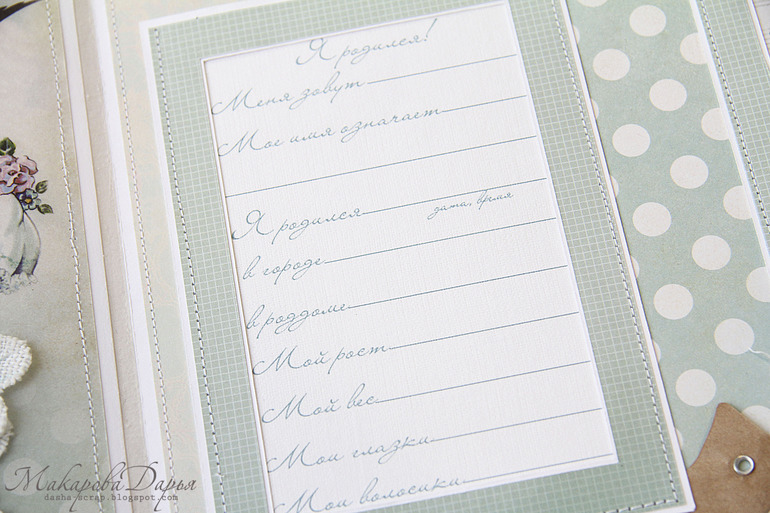 Я родился!
Меня зовут
Мое имя означает
Я родился
дата, время
в городе
в роддоме
Мой рост
Мой вес
Мои глазки
Мои волосики
Макарова Дарья
dasha-scrap.blogspot.com